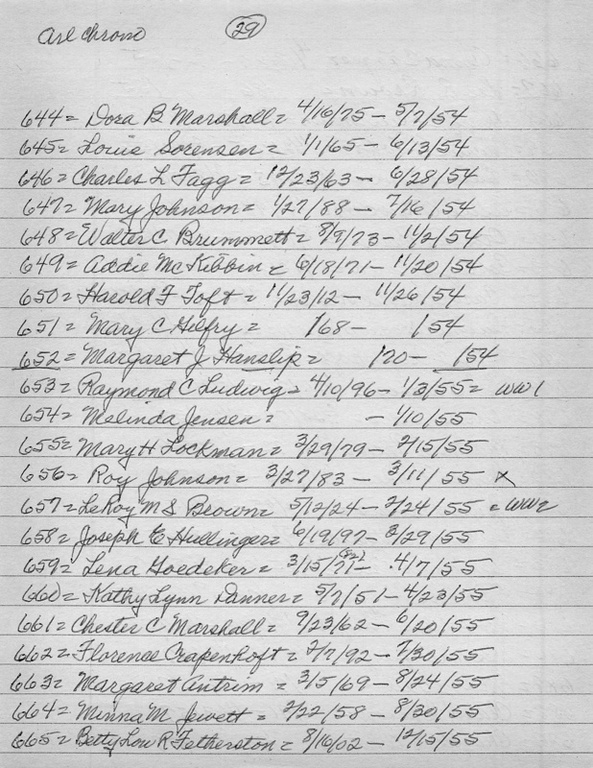 Arl chrono 29
644 = Dora B Marshall = 4/16/75 - 5/7/54
645 = Louis Sorensen = 1/1/65 - 6/13/54
646 = Charles L Fagg = 12/23/63 - 6/28/54
647 = Mary Johnson = 1/27/88 - 7/16/54
648 = Walter C Brummett = 8/9/73 - 11/2/54
649 = Addie McKibbin = 6/18/71 - 11/20/54
650 = Harold F Toft = 11/23/12 - 11/26/54
651 = Mary C Gilfry = /68 - /54
652 = Margaret J Hanslip = /70 - /54
653 = Raymond C Ludwig = 4/10/96 - 1/3/55 = WW1
654 = Melinda Jensen = - 1/10/55
655 = Mary H Lockman = 3/29/79 - 2/15/55
656 = Roy Johnson = 3/27/83 - 3/11/55 X
657 = LeRoy M S Brown = 5/12/24 - 2/24/55 = WW2
658 = Joseph E Hullinger = 6/19/97 - 3/29/55
659 = Lena Goedeker = 3/15/71 - 4/7/55
660 = Kathy Lynn Danner = 5/7/51 - 4/23/55
661 = Chester C Marshall = 9/23/62 - 6/20/55
662 = Florence Crapenhoft = 7/7/92 - 7/30/55
663 = Margaret Antrim = 3/5/69 - 8/24/55
664 = Minna M Jewett = 2/22/58 - 8/30/55
665 = Betty Lou R Fetherston = 8/16/02 - 12/15/55